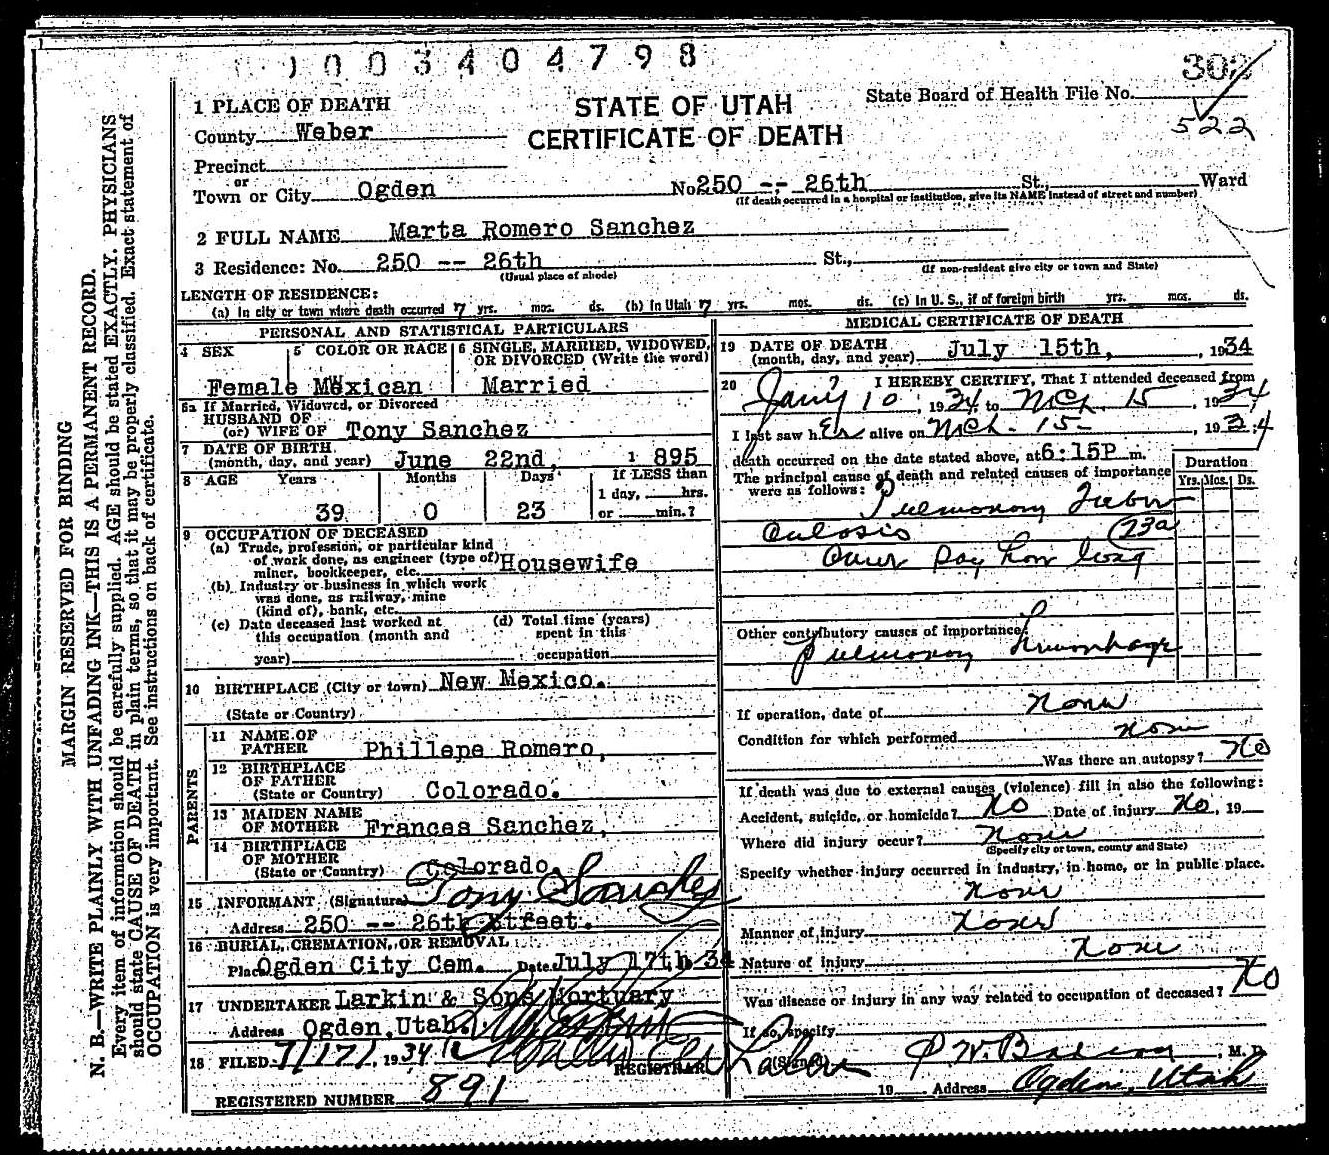 1003404798
302
522
1 PLACE OF DEATH
STATE OF UTAH
State Board of Health File No.
County Weber
CERTIFICATE OF DEATH
Precinct
or
Town or City Ogden No 250 -- 26th St., Ward
(If death occurred in a hospital or institution, give its NAME instead of street and number)
2 FULL NAME Marta Romero Sanchez
3 Residence: No. 250 -- 26th St.,
(Usual place of abode) (If non-resident give city or town and State)
LENGTH OF RESIDENCE:
(a) In city or town where death occurred 7 yrs. mos. ds. (b) In Utah 7 yrs. mos. ds. (c) In U. S., if of foreign birth yrs. mos. ds.
PERSONAL AND STATISTICAL PARTICULARS
4 SEX 5 COLOR OR RACE 6 SINGLE, MARRIED, WIDOWED, OR DIVORCED (Write the word)
Female Mexican Married
5a If Married, Widowed, or Divorced
HUSBAND OF
(or) WIFE OF Tony Sanchez
7 DATE OF BIRTH
(month, day, and year) June 22nd, 1895
8 AGE Years Months Days If LESS than
1 day, hrs.
39 0 23 or min.?
9 OCCUPATION OF DECEASED
(a) Trade, profession, or particular kind
of work done, as engineer (type of) Housewife
miner, bookkeeper, etc.
(b) Industry or business in which work
was done, as railway, mine
(kind of), bank, etc.
(c) Date deceased last worked at (d) Total time (years)
this occupation (month and spent in this
year) occupation
10 BIRTHPLACE (City or town) New Mexico.
(State or Country)
PARENTS
11 NAME OF
FATHER Phillepe Romero,
12 BIRTHPLACE
OF FATHER
(State or Country) Colorado.
13 MAIDEN NAME
OF MOTHER Frances Sanchez,
14 BIRTHPLACE
OF MOTHER
(State or Country) Colorado
15 INFORMANT (Signature) Tony Sanchez
Address 250 -- 26th Street.
16 BURIAL, CREMATION, OR REMOVAL
Place Ogden City Cem. Date July 17th 34
17 UNDERTAKER Larkin & Sons Mortuary
Address Ogden, Utah.
18 FILED 7/17/, 1934
REGISTRAR
REGISTERED NUMBER 891
MEDICAL CERTIFICATE OF DEATH
19 DATE OF DEATH
(month, day, and year) July 15th, , 1934
20 I HEREBY CERTIFY, That I attended deceased from
Jan'y 10, 1934, to Mch. 15, 1934,
I last saw her alive on Mch. 15-, 1934;
death occurred on the date stated above, at 6:15P m.
The principal cause of death and related causes of importance
were as follows:
Duration
Yrs. Mos. Ds.
Pulmonary Tuber
culosis 23a
how long
Other contributory causes of importance:
Pulmonary Hemorrhage
If operation, date of None
Condition for which performed None
Was there an autopsy? No
If death was due to external causes (violence) fill in also the following:
Accident, suicide, or homicide? No Date of injury No, 19
Where did injury occur? None
(Specify city or town, county and State)
Specify whether injury occurred in industry, in home, or in public place.
None
Manner of injury None
Nature of injury None
Was disease or injury in any way related to occupation of deceased? No
If so, specify
(Signed) , M. D.
19 Address Ogden, Utah
MARGIN RESERVED FOR BINDING
N. B.—WRITE PLAINLY WITH UNFADING INK—THIS IS A PERMANENT RECORD.
Every item of information should be carefully supplied. AGE should be stated EXACTLY. PHYSICIANS
should state CAUSE OF DEATH in plain terms, so that it may be properly classified. Exact statement of
OCCUPATION is very important. See instructions on back of certificate.